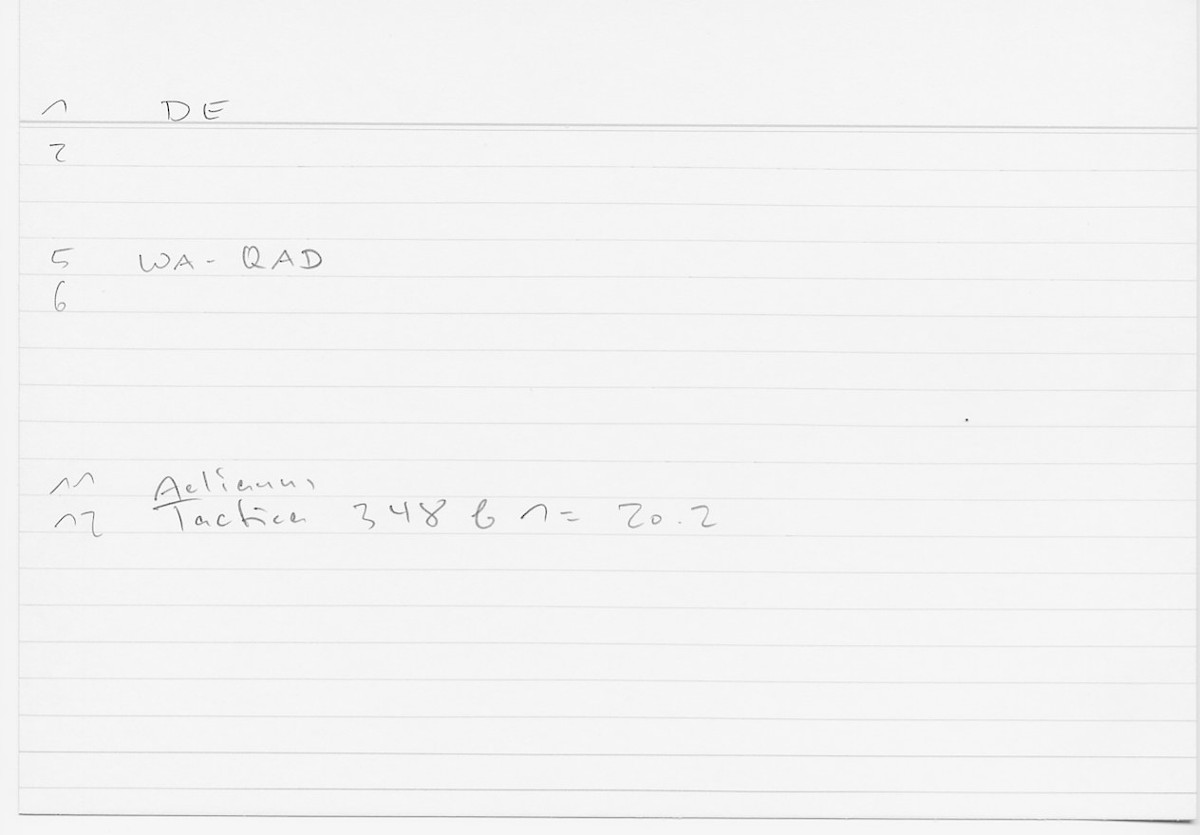 1 DE
2
5 WA-QAD
6
11 Aelianus
12 Tactica 348 b 1 = 20.2